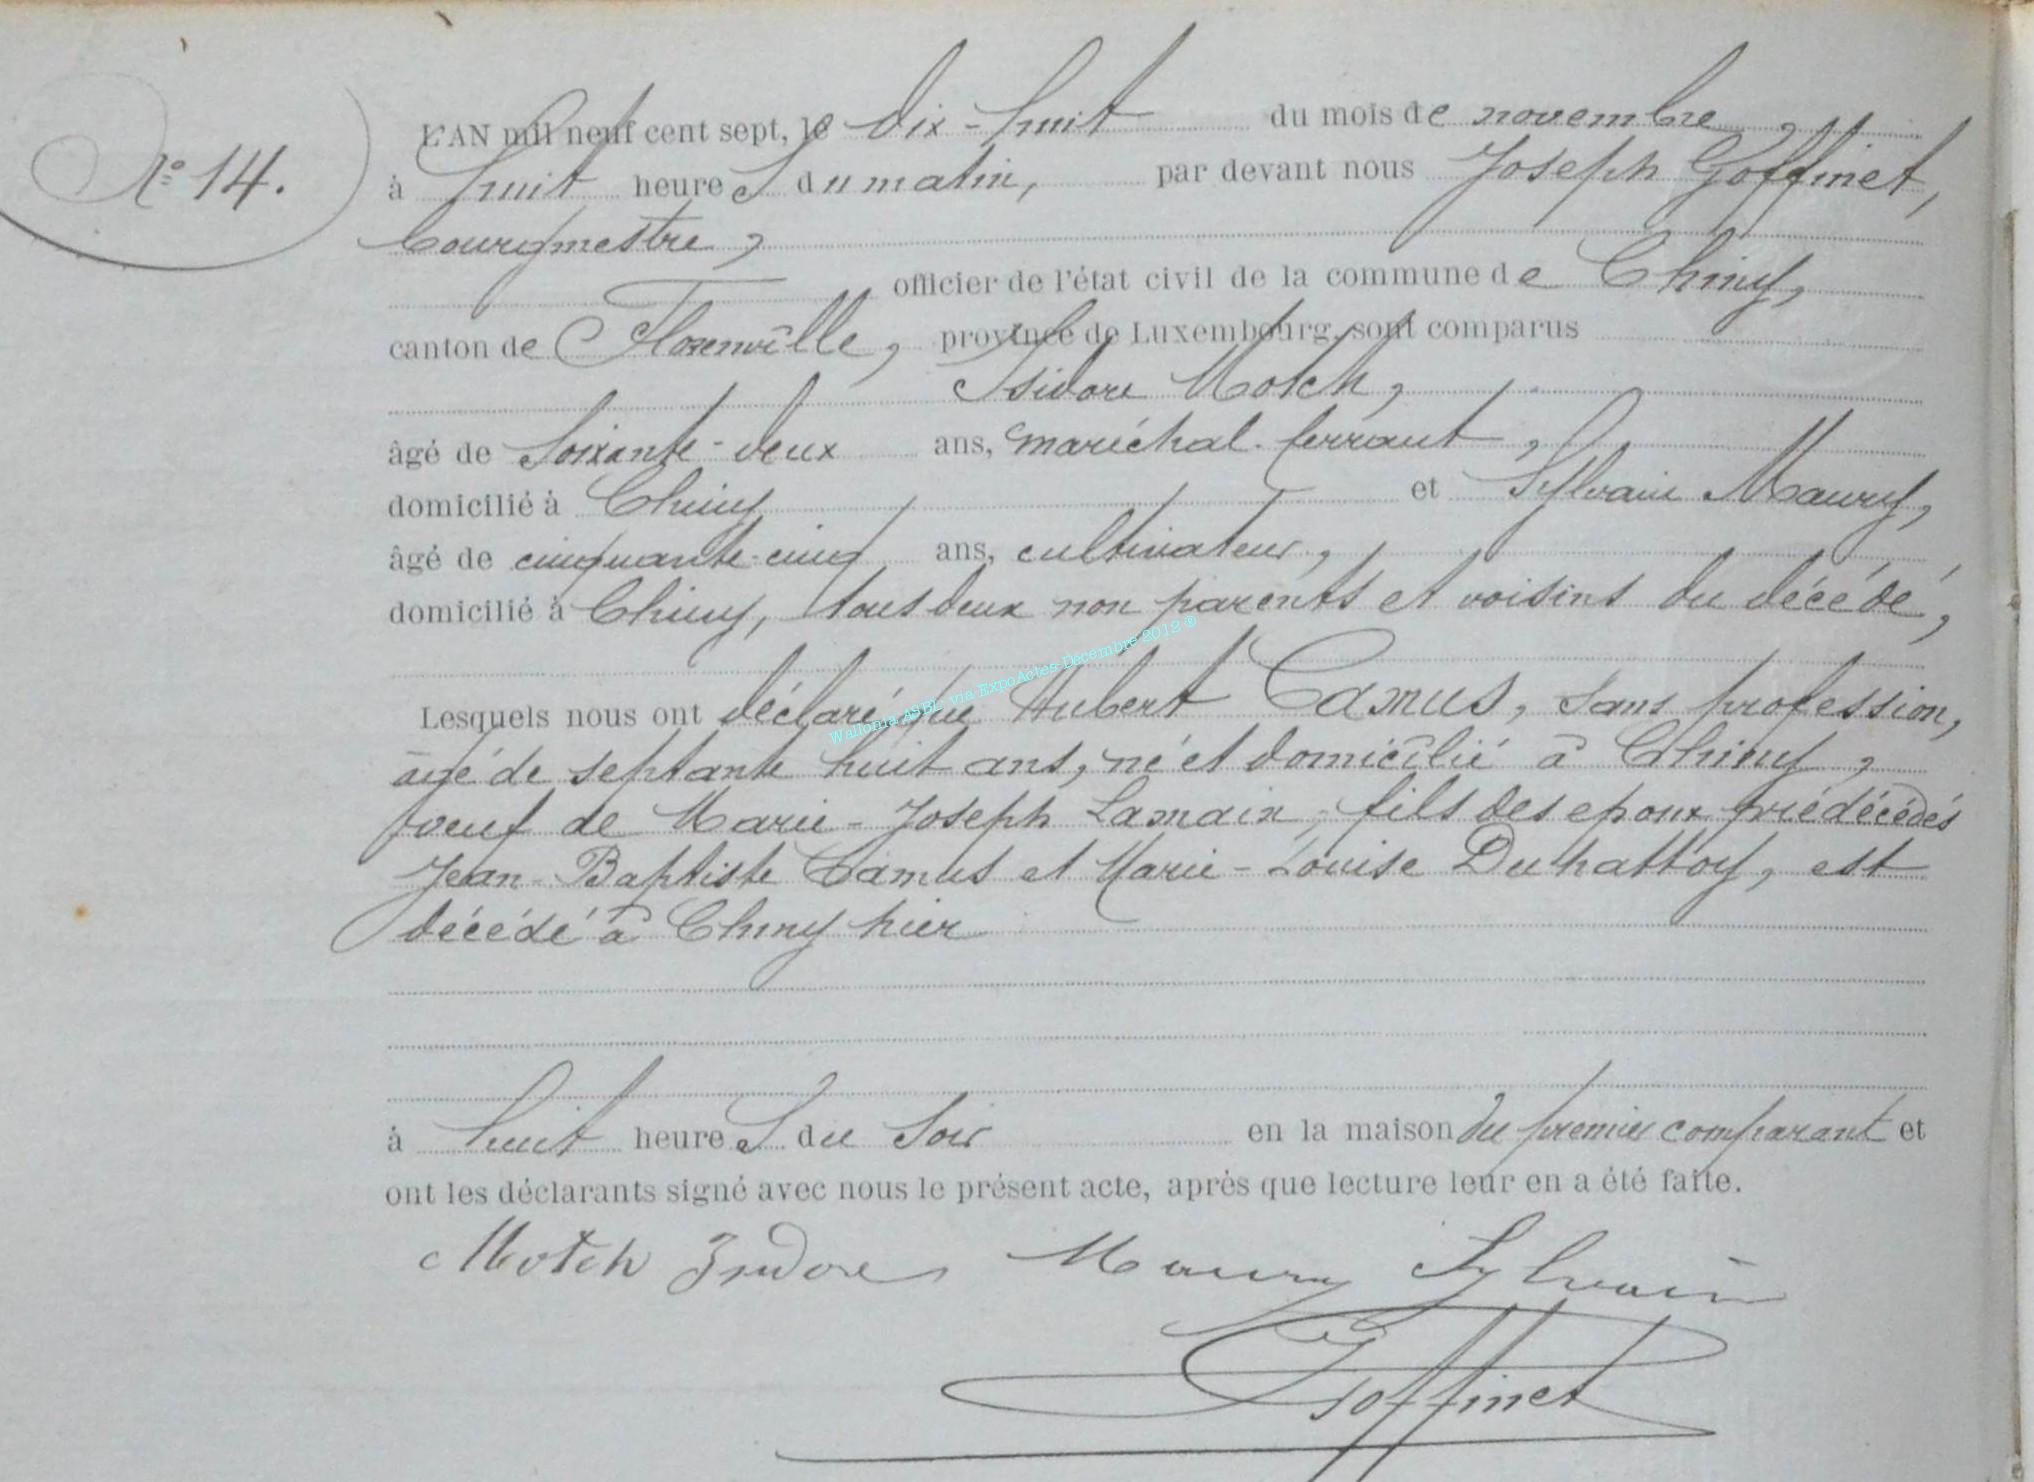 N° 14.
L'AN mil neuf cent sept, le dix-huit du mois de novembre,
à huit heures du matin, par devant nous Joseph Goffinet,
bourgmestre,
officier de l'état civil de la commune de Chiny,
canton de Florenville, province de Luxembourg, sont comparus
Isidore Motch,
âgé de soixante-deux ans, maréchal-ferrant,
domicilié à Chiny et Sylvain Maury,
âgé de cinquante-cinq ans, cultivateur,
domicilié à Chiny, tous deux non parents et voisins du décédé,
Lesquels nous ont déclaré que Hubert Camus, sans profession,
âgé de septante huit ans, né et domicilié à Chiny,
veuf de Marie-Joseph Lamain, fils des époux prédécédés
Jean-Baptiste Camus et Marie-Louise Duhattoy, est
décédé à Chiny hier
à huit heures du soir en la maison du premier comparant et
ont les déclarants signé avec nous le présent acte, après que lecture leur en a été faite.
Motch Isidore Maury Sylvain
Goffinet
Wallonia ASBL via ExpoActes-Décembre 2012 ®